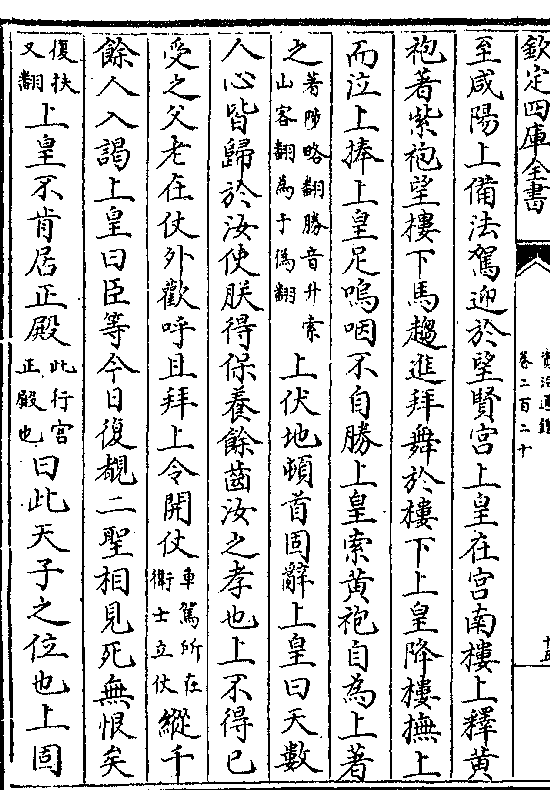 欽定四庫全書
資治通鑑
卷二百二十
至咸陽上備法駕迎於望賢宮上皇在宮南樓上釋黄
袍著紫袍望樓下馬趨進拜舞於樓下上皇降樓撫上
而泣上捧上皇足嗚咽不自勝上皇索黄袍自為上著
之著陟略翻勝音升索山客翻為于偽翻上伏地頓首固辭上皇曰天數
人心皆歸於汝使朕得保養餘齒汝之孝也上不得已
受之父老在仗外歡呼且拜上令開仗車駕所在衛士立仗縱千
餘人入謁上皇曰臣等今日復覩二聖相見死無恨矣
復扶又翻上皇不肯居正殿此行宫正殿也曰此天子之位也上固